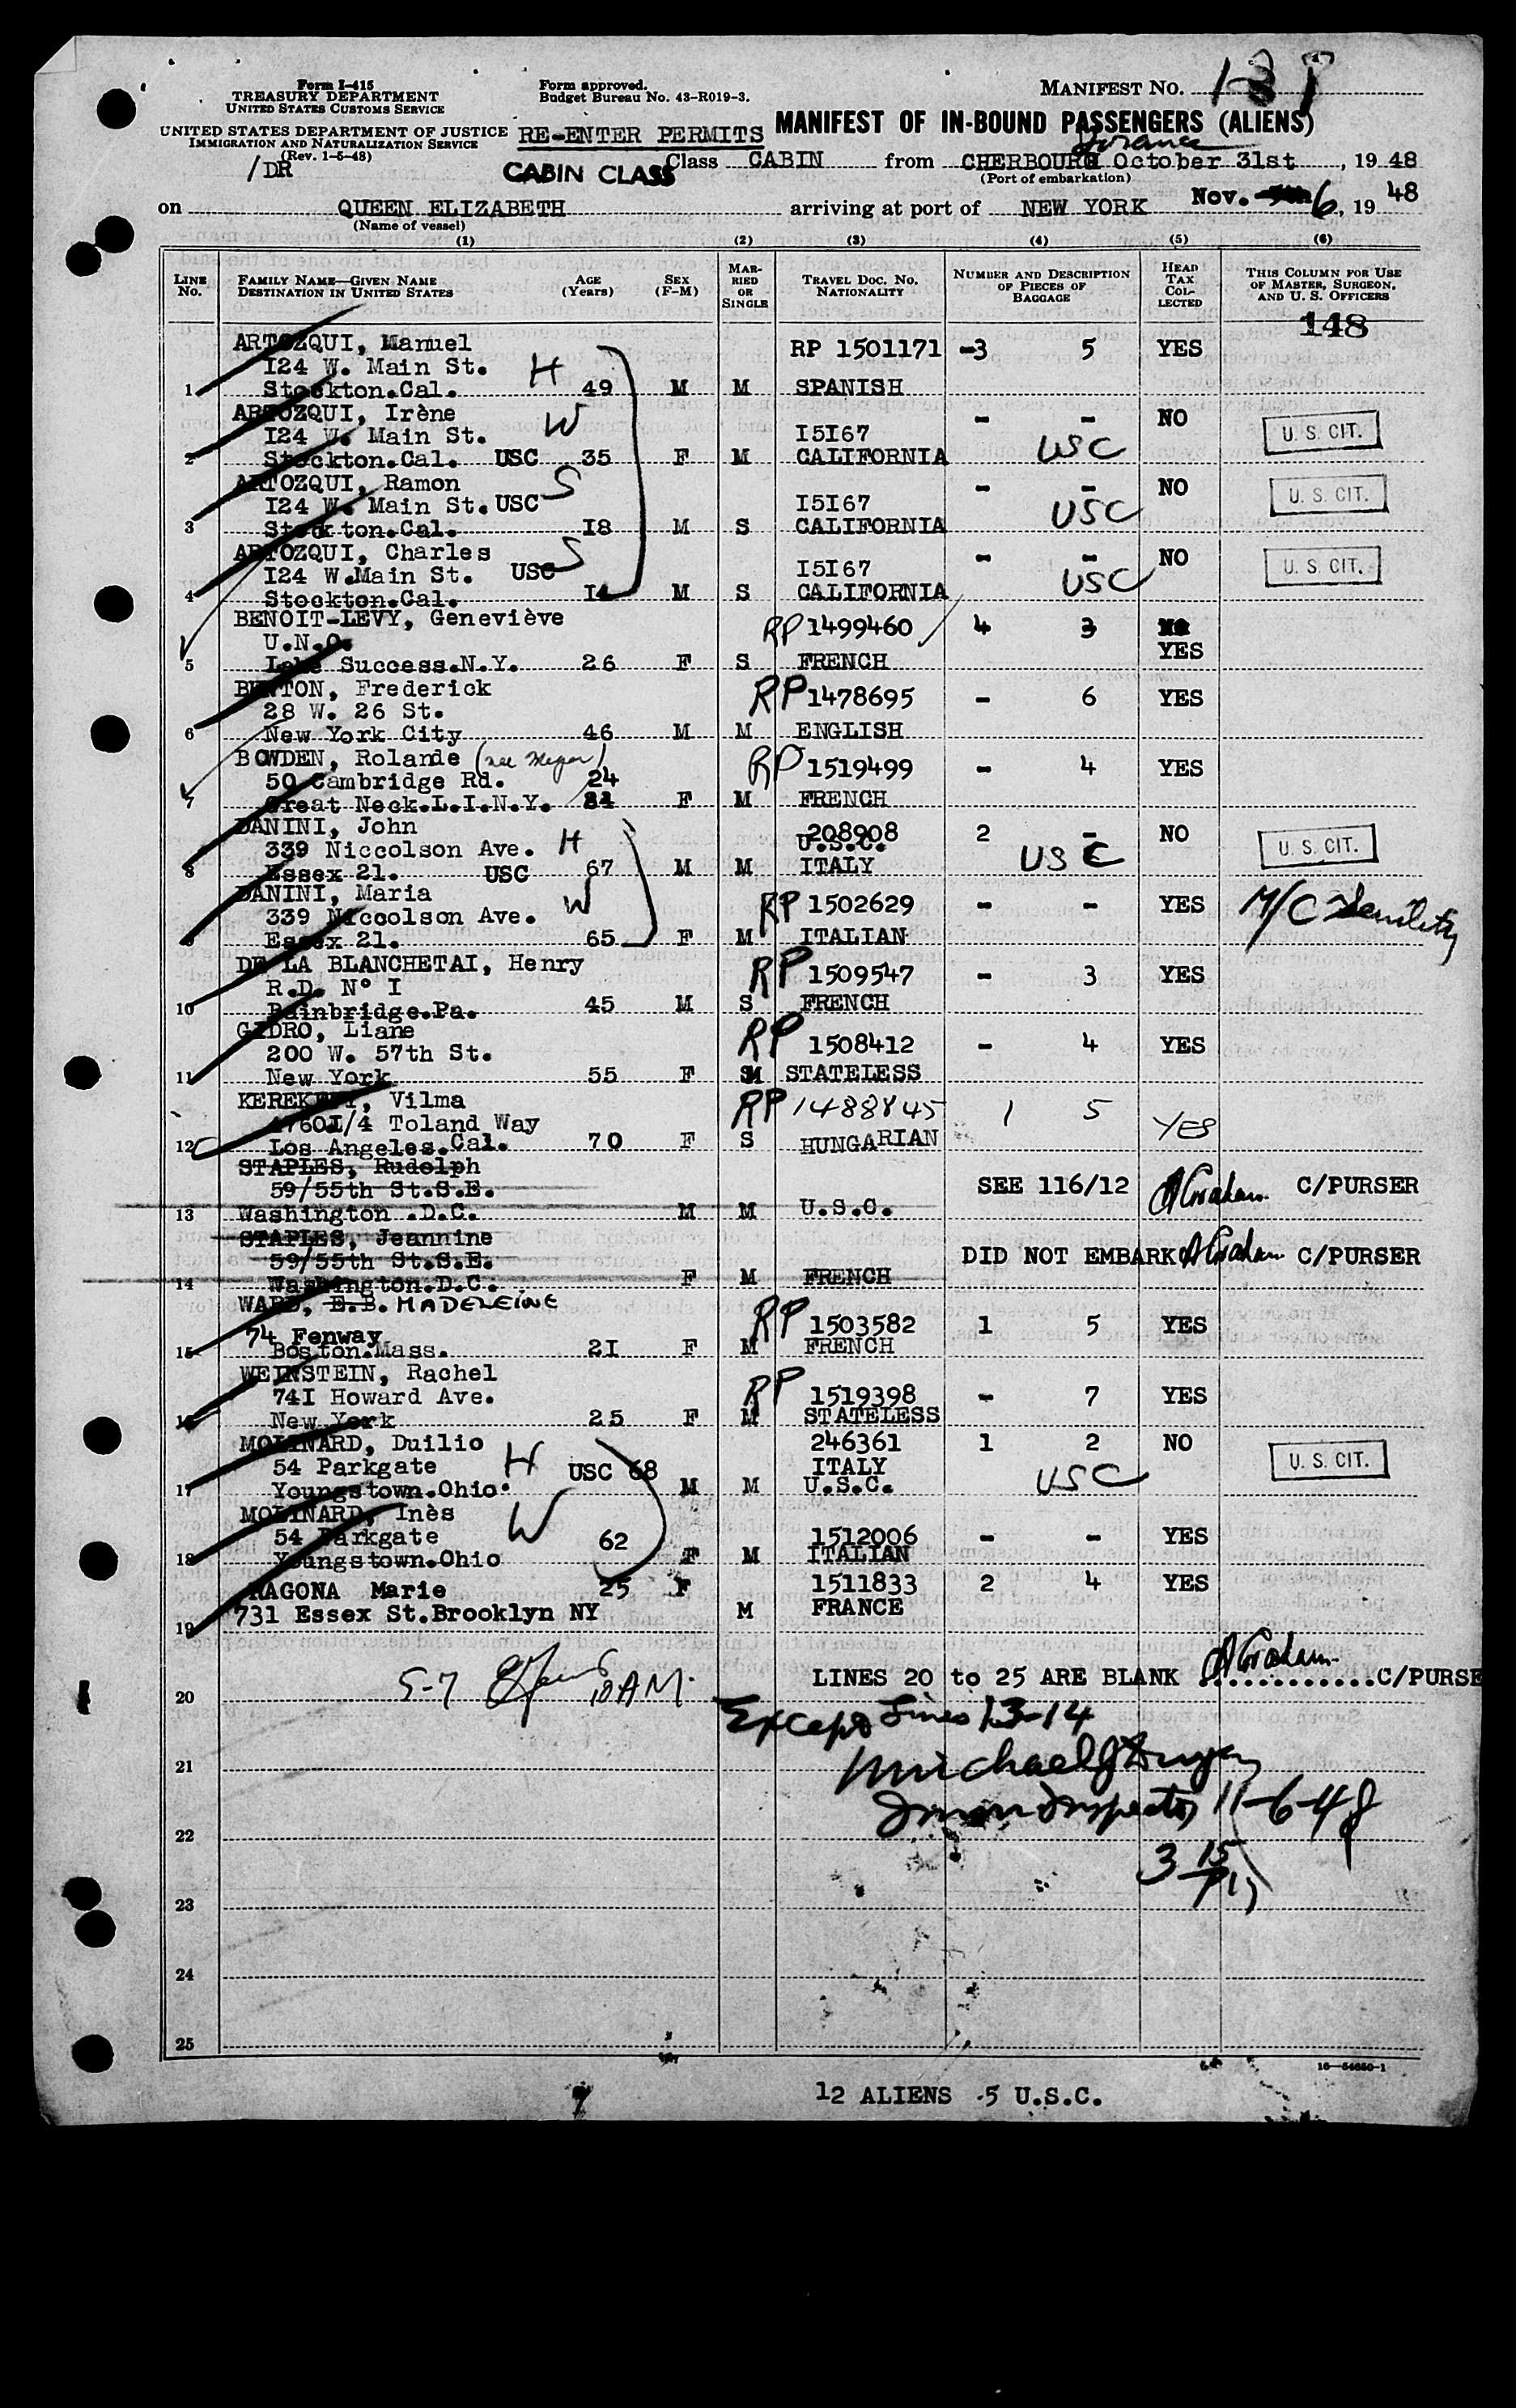 Form I-415
TREASURY DEPARTMENT
UNITED STATES CUSTOMS SERVICE
UNITED STATES DEPARTMENT OF JUSTICE
IMMIGRATION AND NATURALIZATION SERVICE
(Rev. 1-5-48)
/DR
Form approved.
Budget Bureau No. 43-R019-3.
RE-ENTER PERMITS
CABIN CLASS
MANIFEST No.
MANIFEST OF IN-BOUND PASSENGERS (ALIENS)
Class CABIN from CHERBOURG October 31st, 1948
(Port of embarkation)
on QUEEN ELIZABETH arriving at port of NEW YORK Nov. 6, 1948
(Name of vessel)
(1) (2) (3) (4) (5) (6)
LINE No. FAMILY NAME—GIVEN NAME DESTINATION IN UNITED STATES AGE (Years) SEX (F-M) MARRIED OR SINGLE TRAVEL DOC. No. NATIONALITY NUMBER AND DESCRIPTION OF PIECES OF BAGGAGE HEAD TAX COLLECTED THIS COLUMN FOR USE OF MASTER, SURGEON, AND U. S. OFFICERS
148
ARTOZQUI, Manuel RP 1501171 -3 5 YES
I24 W. Main St. H
1 Stockton.Cal. 49 M M SPANISH
ARTOZQUI, Irène W - - NO U. S. CIT.
I24 W. Main St. I5I67
2 Stockton.Cal. USC 35 F M CALIFORNIA USC
ARTOZQUI, Ramon S - - NO U. S. CIT.
I24 W. Main St. USC I5I67
3 Stockton.Cal. I8 M S CALIFORNIA USC
ARTOZQUI, Charles S - - NO U. S. CIT.
I24 W.Main St. USC I5I67
4 Stockton.Cal. I4 M S CALIFORNIA USC
BENOIT-LEVY, Geneviève RP 1499460 4 3
U.N.O. YES
5 Lake Success.N.Y. 26 F S FRENCH
BENTON, Frederick RP 1478695 - 6 YES
28 W. 26 St.
6 New York City 46 M M ENGLISH
BOWDEN, Rolande RP 1519499 - 4 YES
50 Cambridge Rd. 24
7 Great Neck.L.I.N.Y. F M FRENCH
DANINI, John 208908 2 - NO U. S. CIT.
339 Niccolson Ave. H U.S.C.
8 Essex 21. USC 67 M M ITALY USC
DANINI, Maria W RP 1502629 - - YES M/C Senility
339 Niccolson Ave.
9 Essex 21. 65 F M ITALIAN
DE LA BLANCHETAI, Henry RP 1509547 - 3 YES
R.D. N° I
10 Bainbridge.Pa. 45 M S FRENCH
GYDRO, Liane RP 1508412 - 4 YES
200 W. 57th St.
11 New York 55 F M STATELESS
Vilma RP 1488845 1 5 YES
4760I/4 Toland Way
12 Los Angeles.Cal. 70 F S HUNGARIAN
STAPLES, Rudolph
59/55th St.S.E. SEE 116/12 A Graham C/PURSER
13 Washington .D.C. M M U.S.C.
STAPLES, Jeannine
59/55th St.S.E. DID NOT EMBARK A Graham C/PURSER
14 Washington.D.C. F M FRENCH
WARD, E.B. MADELEINE
74 Fenway RP 1503582 1 5 YES
15 Boston.Mass. 2I F M FRENCH
WEINSTEIN, Rachel
74I Howard Ave. RP 1519398 - 7 YES
16 New York 25 F M STATELESS
MOLINARD, Duilio 246361 1 2 NO U. S. CIT.
54 Parkgate H USC 68 ITALY
17 Youngstown.Ohio. M M U.S.C. USC
MOLINARD, Inès W
54 Parkgate 62 1512006 - - YES
18 Youngstown.Ohio F M ITALIAN
RAGONA Marie 25 F 1511833 2 4 YES
19 731 Essex St.Brooklyn NY M FRANCE
S-7 10 AM.
20 LINES 20 to 25 ARE BLANK A Graham C/PURSE
Except Lines 13-14
21
Immn Inspector 11-6-48
22
3 15
23
24
25
16—54650-1
12 ALIENS 5 U.S.C.